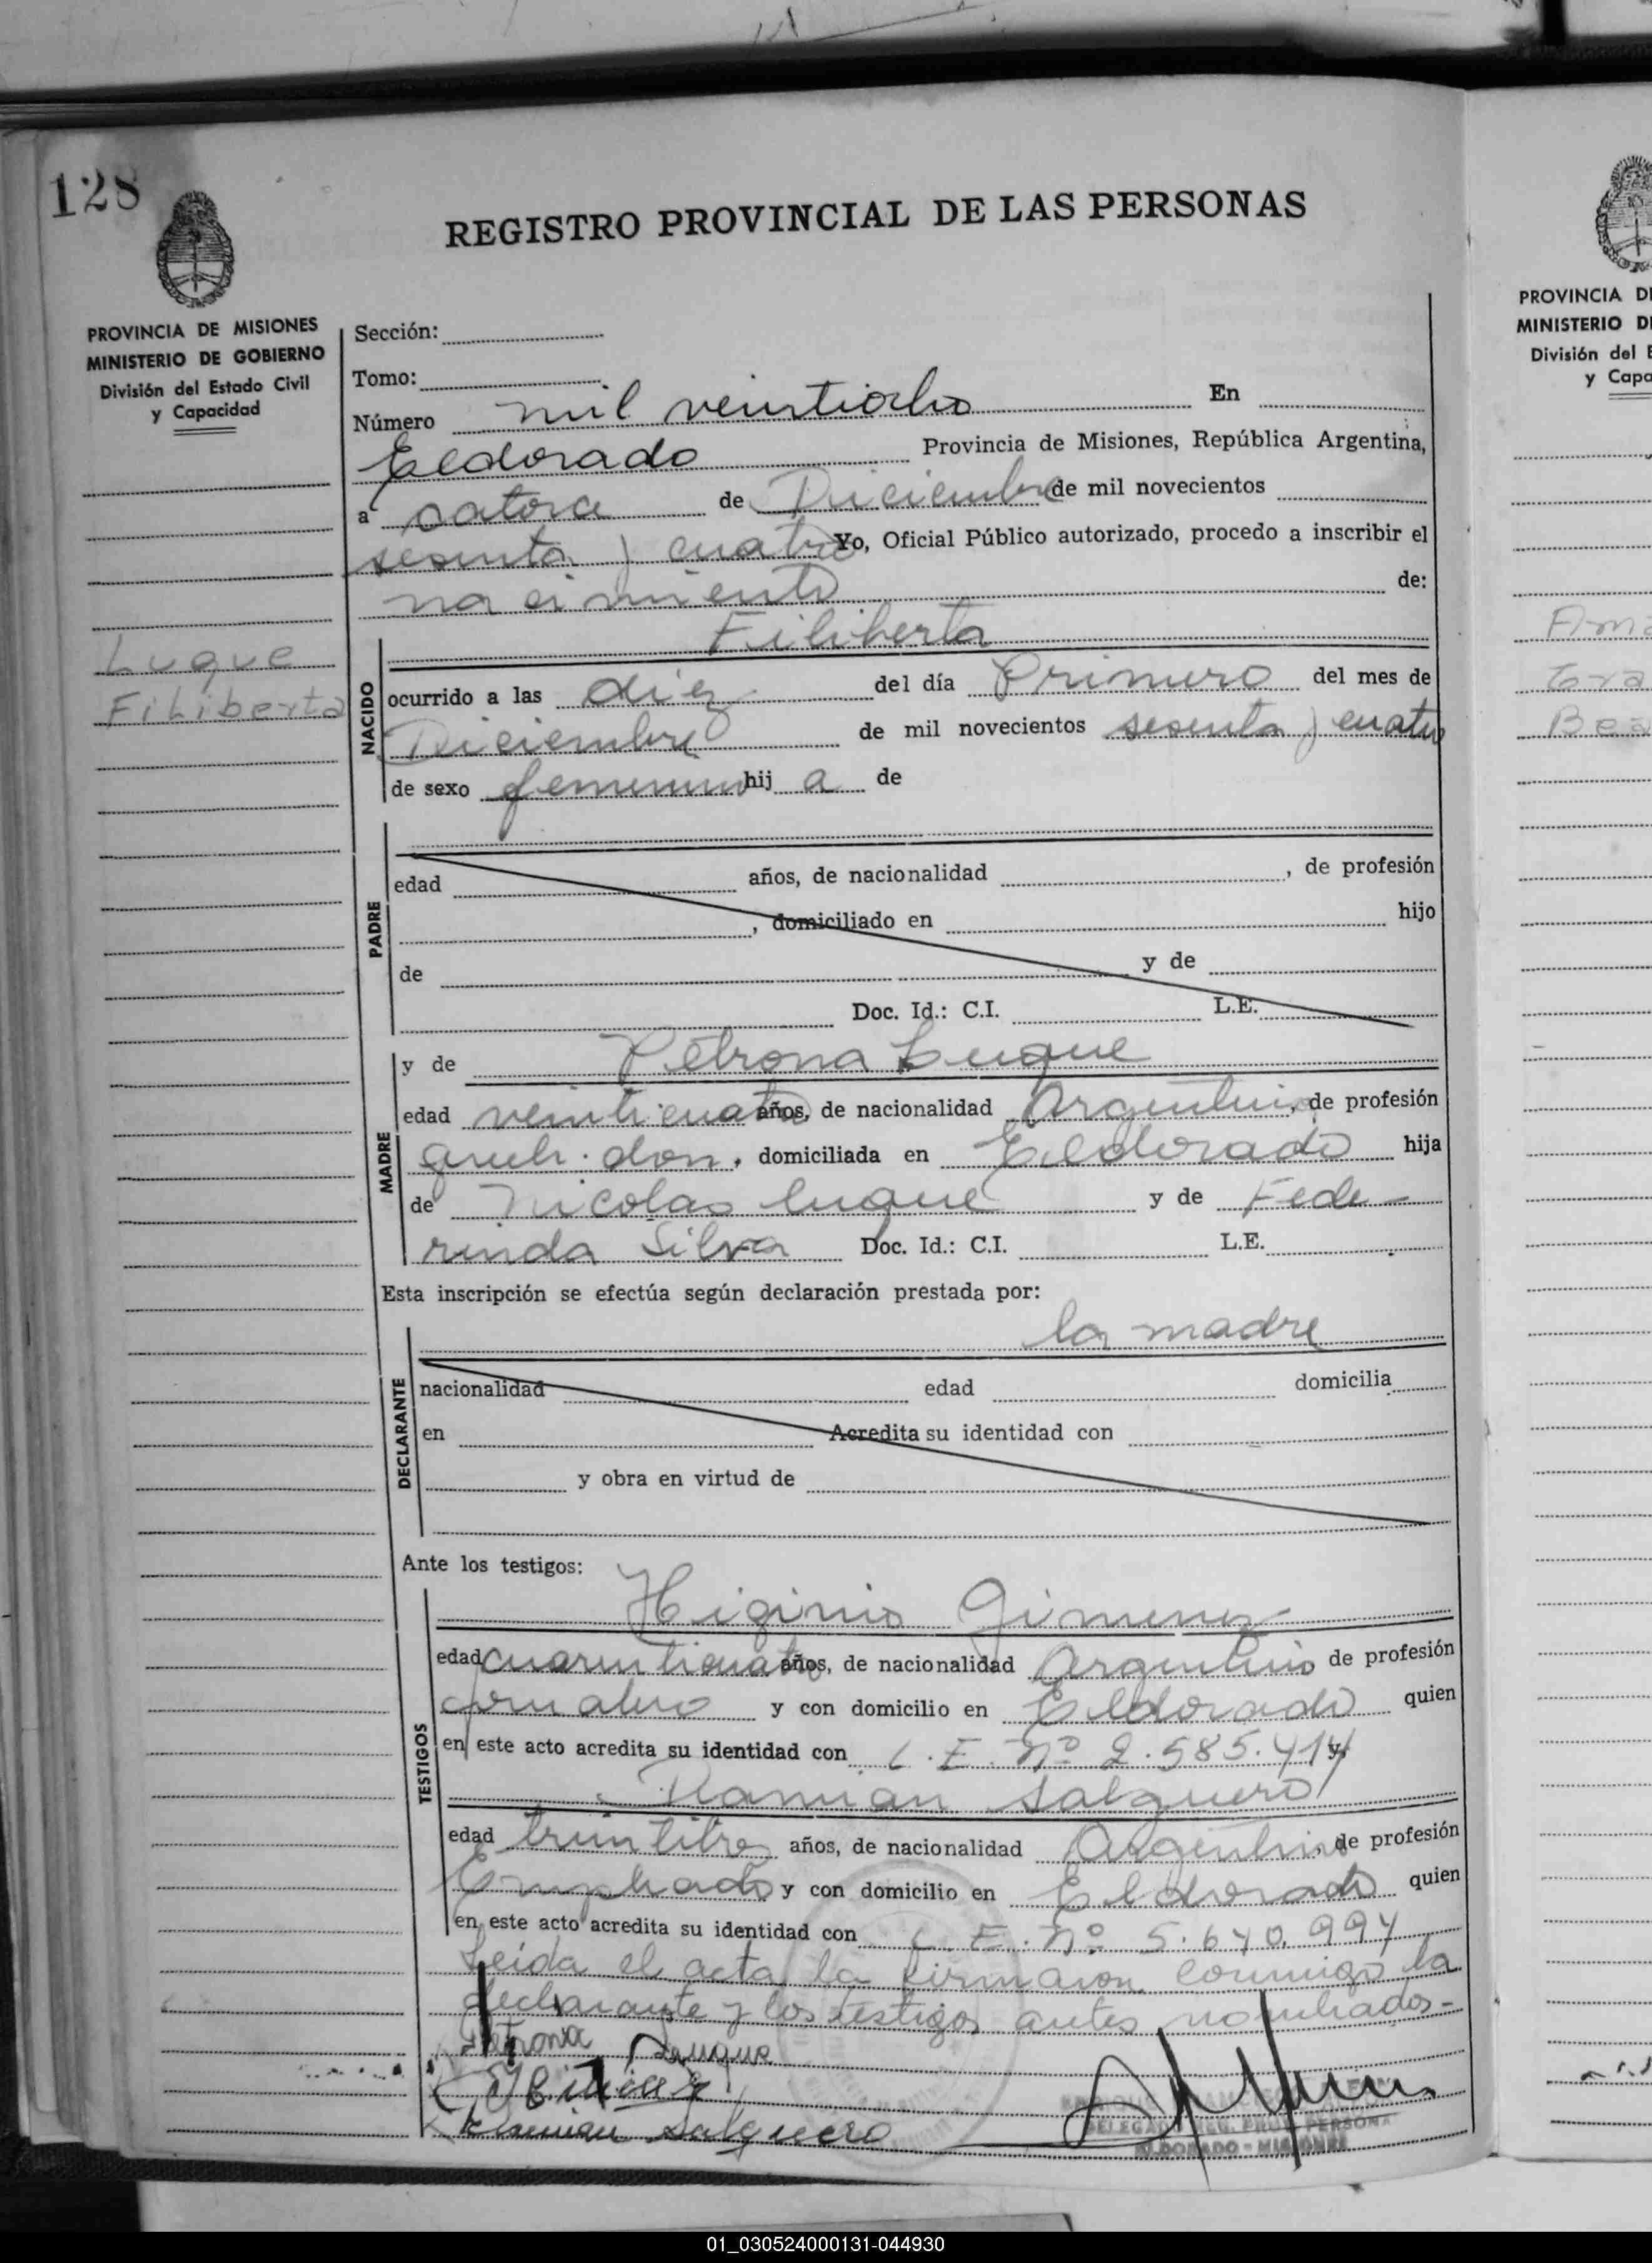 128
REGISTRO PROVINCIAL DE LAS PERSONAS
PROVINCIA DE MISIONES
MINISTERIO DE GOBIERNO
División del Estado Civil
y Capacidad
Luque
Filiberta
Sección:
Tomo:
Número mil veintiocho En
Eldorado Provincia de Misiones, República Argentina,
a catorce de Diciembre de mil novecientos
sesenta y cuatro Yo, Oficial Público autorizado, procedo a inscribir el
nacimiento de:
Filiberta
NACIDO
ocurrido a las diez del día Primero del mes de
Diciembre de mil novecientos sesenta y cuatro
de sexo femenino hij a de
PADRE
edad años, de nacionalidad , de profesión
, domiciliado en hijo
de y de
Doc. Id.: C.I. L.E.
MADRE
y de Petrona Luque
edad veinticuatro años, de nacionalidad Argentina, de profesión
queh. dom. , domiciliada en Eldorado hija
de Nicolas Luque y de Fede-
rinda Silva Doc. Id.: C.I. L.E.
Esta inscripción se efectúa según declaración prestada por:
la madre
DECLARANTE
nacionalidad edad domicilia
en Acredita su identidad con
y obra en virtud de
Ante los testigos:
TESTIGOS
Higinio Gimenez
edad cuarenticuatro años, de nacionalidad Argentino de profesión
jornalero y con domicilio en Eldorado quien
en este acto acredita su identidad con L.E. Nº 2.585.414 y
Damian Salguero
edad treintitres años, de nacionalidad Argentino de profesión
Empleado y con domicilio en Eldorado quien
en este acto acredita su identidad con L.E. Nº 5.640.994
Leida el acta la firmaron conmigo la
declarante y los testigos antes nombrados-
Petrona Luque
Damian Salguero
ELDORADO - MISIONES
PROVINCIA DE
MINISTERIO DE
División del E
y Capa
Ama
Gra
Bea
01_030524000131-044930